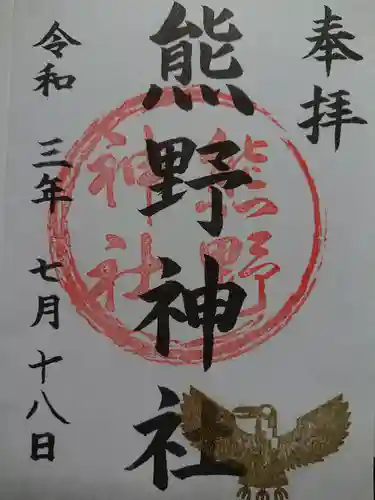 奉拝
熊野神社
熊野
神社
令和三年七月十八日